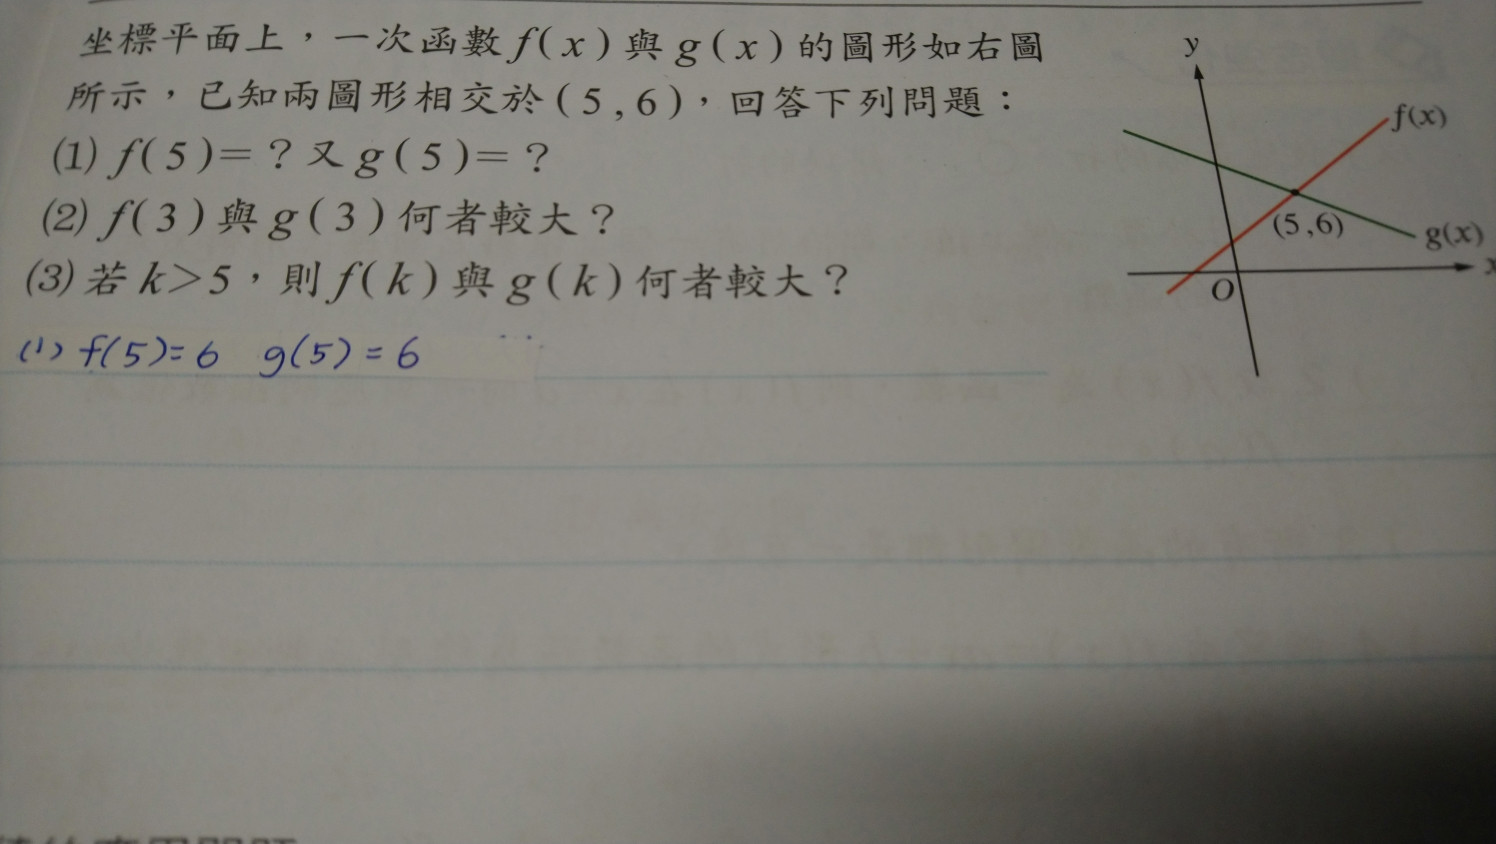 坐標平面上，一次函數 f(x) 與 g(x) 的圖形如右圖
所示，已知兩圖形相交於 (5,6)，回答下列問題：
(1) f(5)=？又 g(5)=？
(2) f(3) 與 g(3) 何者較大？
(3) 若 k>5，則 f(k) 與 g(k) 何者較大？
(1) f(5)=6 g(5)=6
y
f(x)
(5,6)
g(x)
x
O